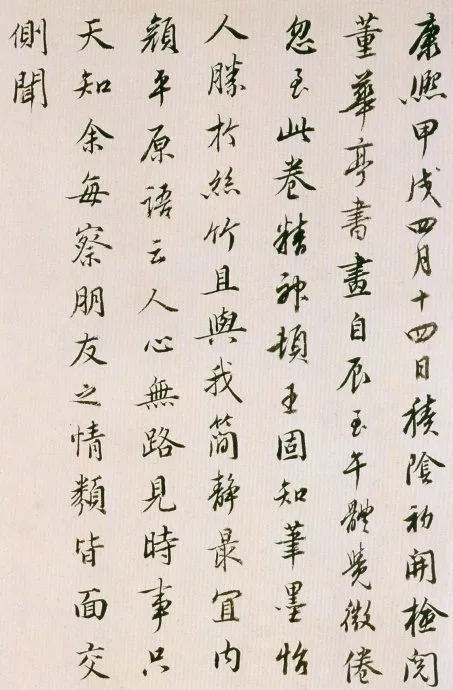 康熙甲戌四月十四日積陰初開檢閱
董華亭書畫自辰至午體覺微倦
忽至此卷精神頓王固知筆墨怡
人勝於絲竹且與我簡靜最宜內
顏平原語云人心無路見時事只
天知余每察朋友之情類皆面交
側聞